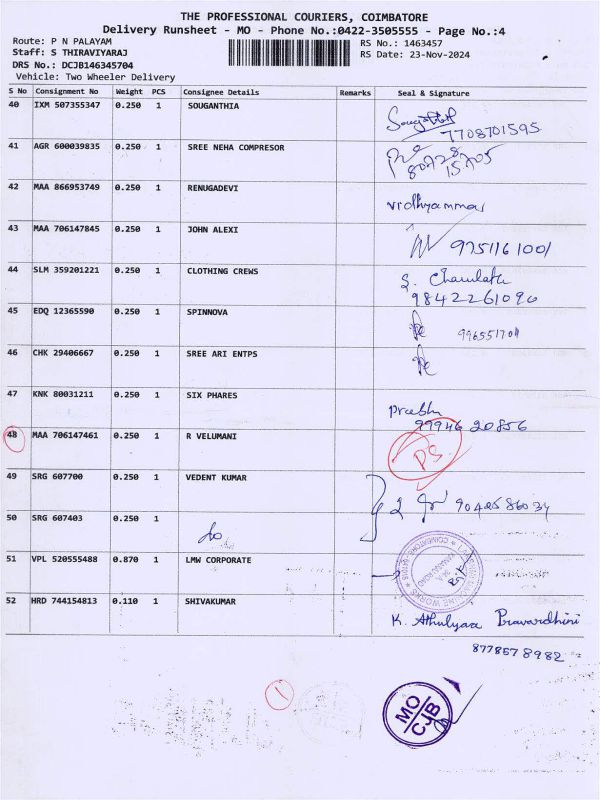 THE PROFESSIONAL COURIERS, COIMBATORE
Delivery Runsheet - MO - Phone No.:0422-3505555 - Page No.:4
Route: P N PALAYAM
RS No.: 1463457
Staff: S THIRAVIYARAJ
RS Date: 23-Nov-2024
DRS No.: DCJB146345704
Vehicle: Two Wheeler Delivery
S No Consignment No Weight PCS Consignee Details Remarks Seal & Signature
40 IXM 507355347 0.250 1 SOUGANTHIA
7708701595
41 AGR 600039835 0.250 1 SREE NEHA COMPRESOR
80728
15705
42 MAA 866953749 0.250 1 RENUGADEVI
vidhyammai
43 MAA 706147845 0.250 1 JOHN ALEXI
9751161001
44 SLM 359201221 0.250 1 CLOTHING CREWS
9842261090
45 EDQ 12365590 0.250 1 SPINNOVA
46 CHK 29406667 0.250 1 SREE ARI ENTPS
47 KNK 80031211 0.250 1 SIX PHARES
Prabhu
99946 20856
48 MAA 706147461 0.250 1 R VELUMANI
PS
49 SRG 607700 0.250 1 VEDENT KUMAR
50 SRG 607403 0.250 1
do
51 VPL 520555488 0.870 1 LMW CORPORATE
52 HRD 744154813 0.110 1 SHIVAKUMAR
K. Athulyaa Pravardhini
8778578982
1
MO
CJB